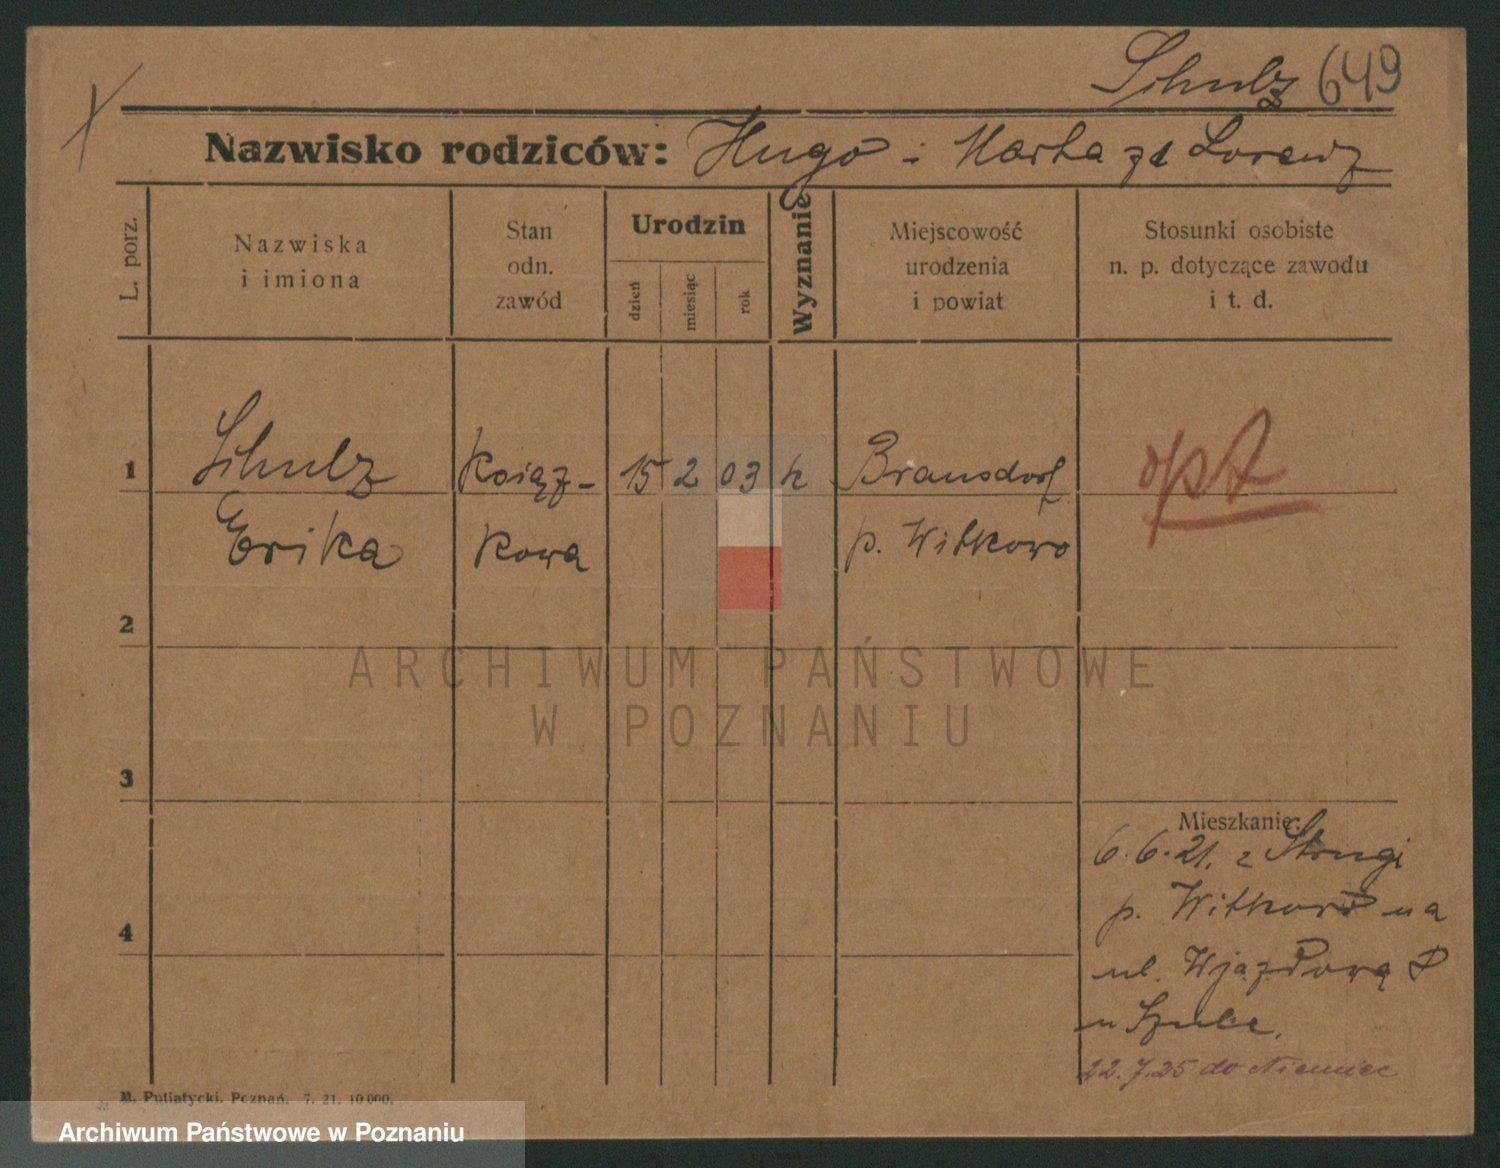 Schulz 649
Nazwisko rodziców: Hugo i Marta zd Lorenz
L. porz.
Nazwiska
i imiona
Stan
odn.
zawód
Urodzin
dzień
miesiąc
rok
Wyznanie
Miejscowość
urodzenia
i powiat
Stosunki osobiste
n. p. dotyczące zawodu
i t. d.
1
Schulz
Erika
Książ-
kowa
15 2 03
Bransdorf
p. Witkowo
opt
2
3
4
Mieszkanie:
6.6.21. z Strugi
p. Witkowo na
ul. Wjazdową 8
u Szulc.
22.7.25 do Niemiec
M. Putiatycki, Poznań. 7. 21. 10 000.
ARCHIWUM PAŃSTWOWE
W POZNANIU
Archiwum Państwowe w Poznaniu